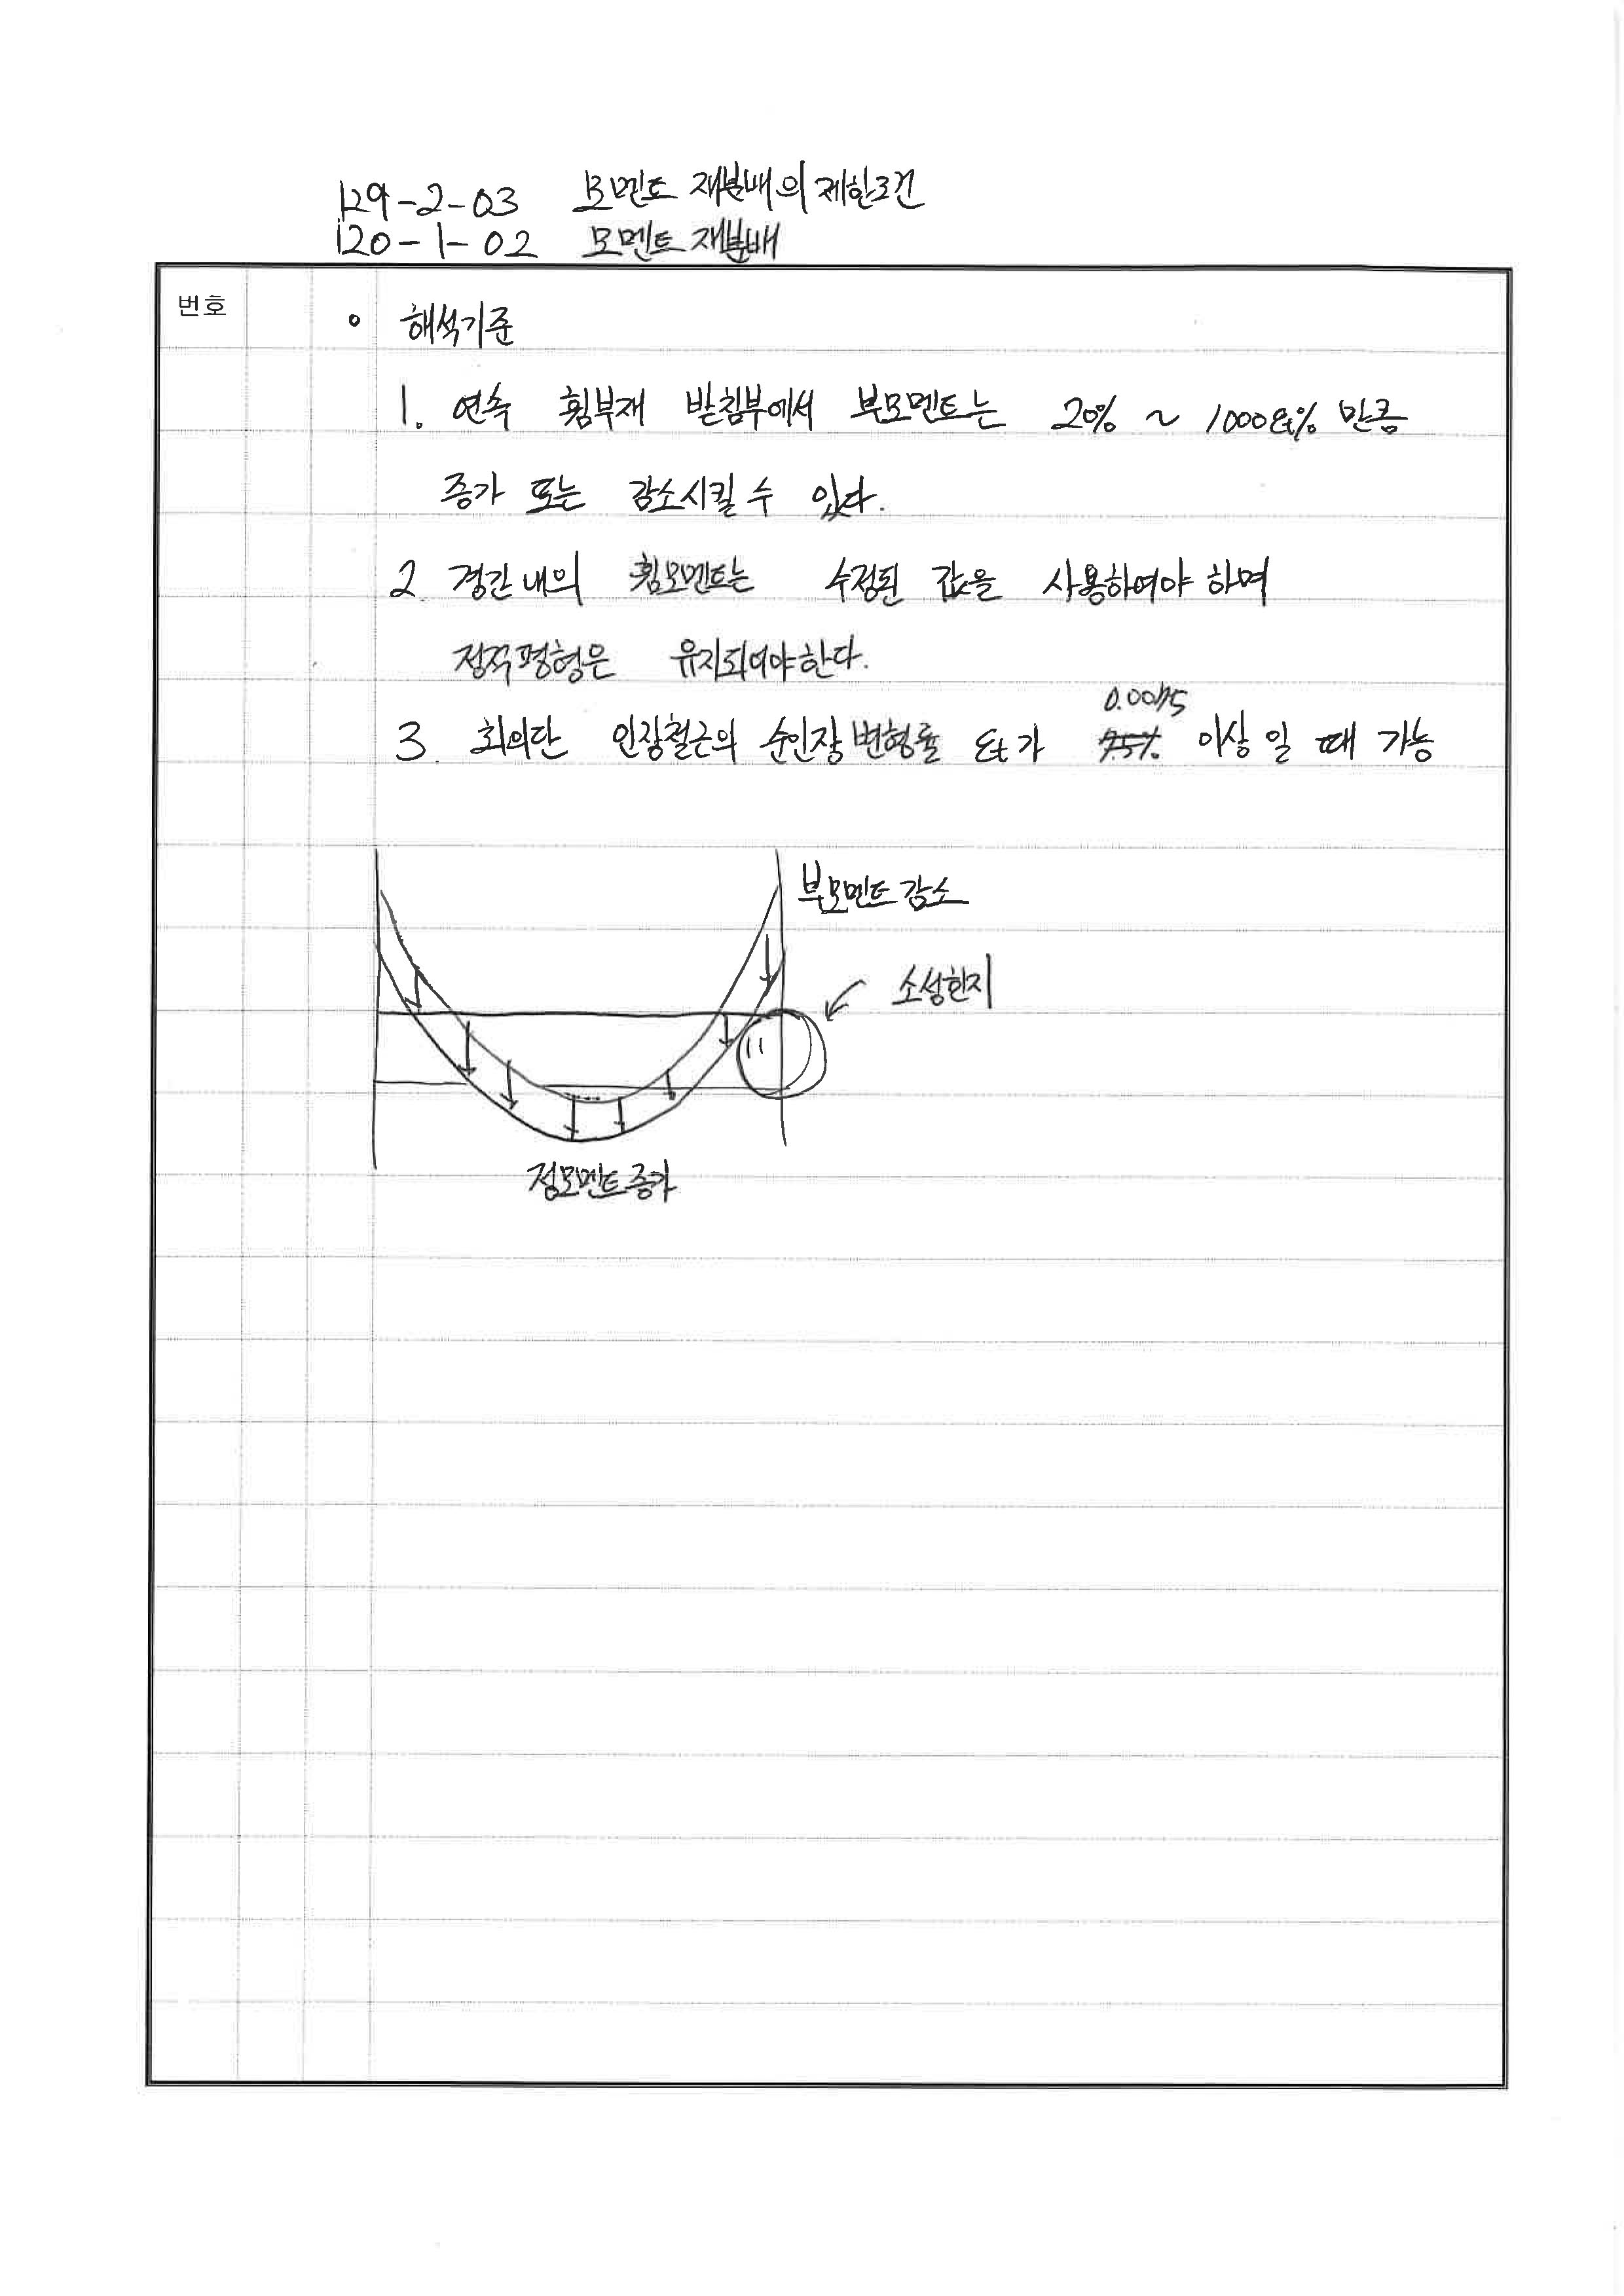 129-2-03 모멘트 재분배의 제한조건
120-1-02 모멘트 재분배
번호
° 해석기준
1. 연속 휨부재 받침부에서 부모멘트는 20% ~ 1000εt% 만큼
증가 또는 감소시킬 수 있다.
2. 경간내의 휨모멘트는 수정된 값을 사용하여야 하며
정적평형은 유지되어야한다.
0.0075
3. 최외단 인장철근의 순인장변형률 εt가 7.5% 이상 일 때 가능
부모멘트 감소
소성힌지
정모멘트 증가